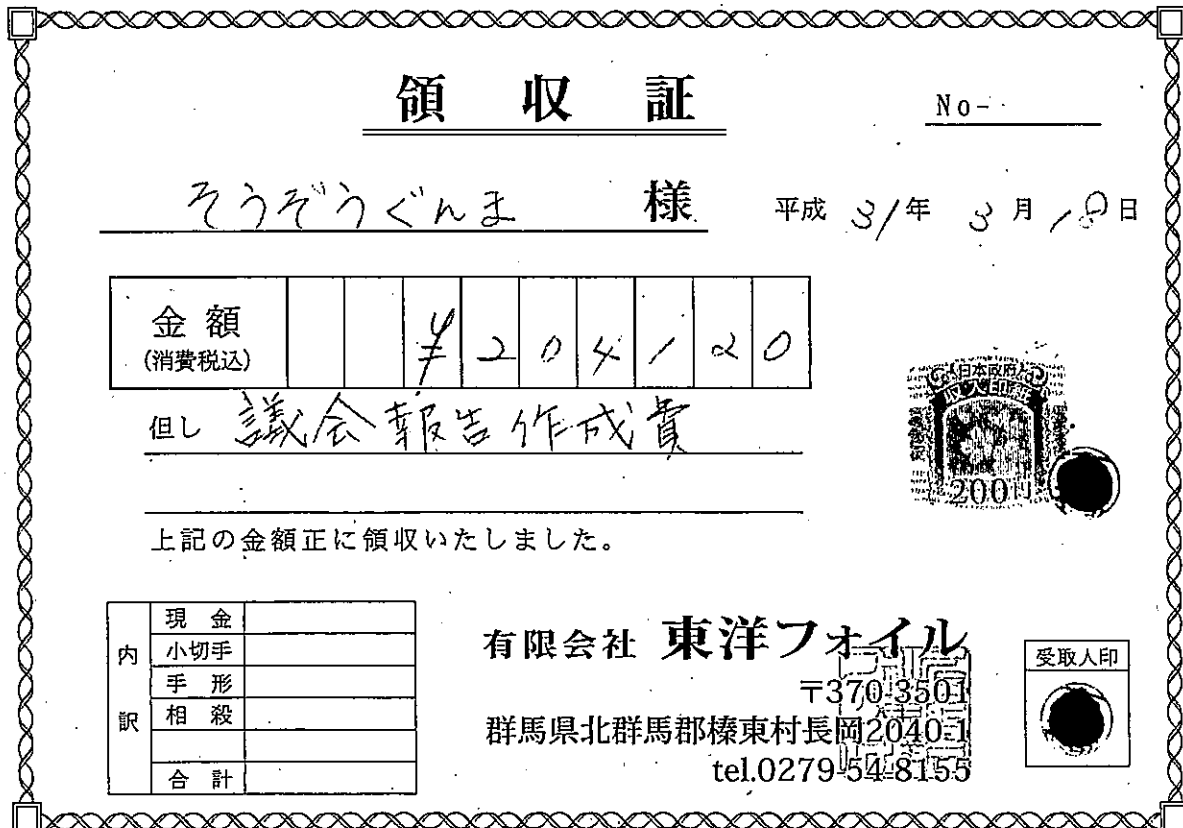 領収証
No-
そうぞうぐんま 様
平成 31年 3月 18日
金額 (消費税込) ¥204120
但し 議会報告作成費
上記の金額正に領収いたしました。
内訳
現金
小切手
手形
相殺
合計
日本政府
収入印紙
200円
有限会社 東洋フォイル
〒370-3501
群馬県北群馬郡榛東村長岡2040-1
tel.0279-54-8155
受取人印